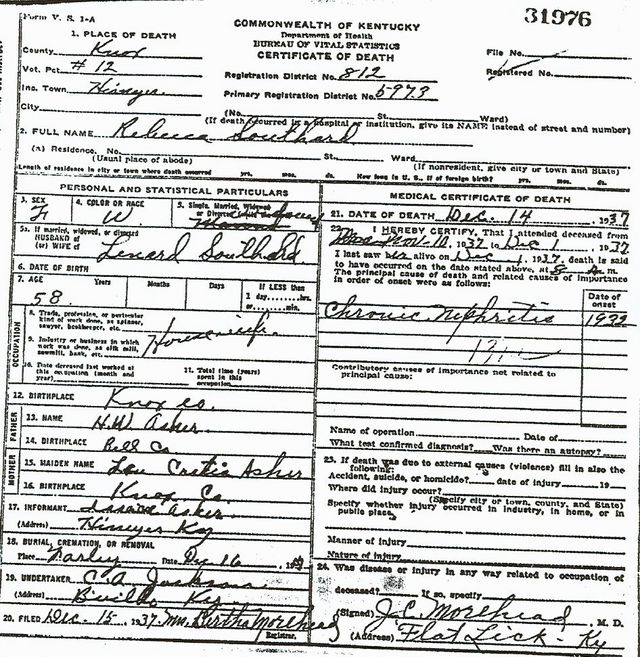 Form V. S. 1-A
31976
COMMONWEALTH OF KENTUCKY
Department of Health
BUREAU OF VITAL STATISTICS
CERTIFICATE OF DEATH
1. PLACE OF DEATH
County Knox
Vot. Pct. #12
Inc. Town Hinyes
City
Registration District No. 812
Primary Registration District No. 5973
File No.
Registered No.
(No. St. Ward)
(If death occurred in a hospital or institution, give its NAME instead of street and number)
2. FULL NAME Rebecca Southard
(a) Residence. No. St. Ward
(Usual place of abode) (If nonresident, give city or town and State)
Length of residence in city or town where death occurred yrs. mos. ds. How long in U. S., if of foreign birth? yrs. mos. ds.
PERSONAL AND STATISTICAL PARTICULARS
3. SEX F
4. COLOR OR RACE W
5. Single, Married, Widowed or Divorced
5a. If married, widowed, or divorced
HUSBAND of
(or) WIFE of Lenard Southard
6. DATE OF BIRTH
7. AGE Years Months Days If LESS than
58 1 day, hrs.
or min.
OCCUPATION
8. Trade, profession, or particular kind of work done, as spinner, sawyer, bookkeeper, etc. Housewife
9. Industry or business in which work was done, as silk mill, sawmill, bank, etc.
10. Date deceased last worked at this occupation (month and year)
11. Total time (years) spent in this occupation
12. BIRTHPLACE Knox co.
FATHER
13. NAME H.W. Asher
14. BIRTHPLACE Bell Co
MOTHER
15. MAIDEN NAME Lou Cretie Asher
16. BIRTHPLACE Knox Co.
17. INFORMANT Asher
(Address) Hinyes Ky
18. BURIAL, CREMATION, OR REMOVAL
Place Farley Date Dec 16 19
19. UNDERTAKER C A Jacksons
(Address) Ky
20. FILED Dec. 15, 1937 Mrs Bertha Morehead
Registrar.
MEDICAL CERTIFICATE OF DEATH
21. DATE OF DEATH Dec. 14, 1937
22. I HEREBY CERTIFY, That I attended deceased
from Nov. 10, 1937 to Dec 1, 1937
I last saw her alive on Dec, 1, 1937, death is said
to have occurred on the date stated above, at 8 A m.
The principal cause of death and related causes of importance
in order of onset were as follows:
Date of onset
Chronic Nephritis 1932
Contributory causes of importance not related to
principal cause:
Name of operation Date of
What test confirmed diagnosis? Was there an autopsy?
23. If death was due to external causes (violence) fill in also the
following:
Accident, suicide, or homicide? date of injury 19
Where did injury occur?
(Specify city or town, county, and State)
Specify whether injury occurred in industry, in home, or in
public place
Manner of injury
Nature of injury
24. Was disease or injury in any way related to occupation of
deceased? If so, specify
(Signed) J.C. Morehead, M. D.
(Address) Flat Lick - Ky